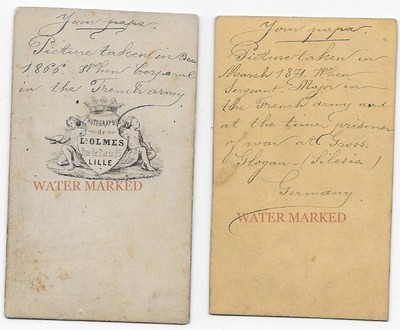 Your papa.
Picture taken in Dec
1866. When Corporal
in the French army
PHOTOGRAPHIE
de
Ls. OLMES
LILLE
WATER MARKED
Your papa.
Picture taken in
March 1871. When
Sergeant Major in
the French army and
at the time prisoner
of war at Gross.
Glogau - (Silesia)
Germany.
WATER MARKED